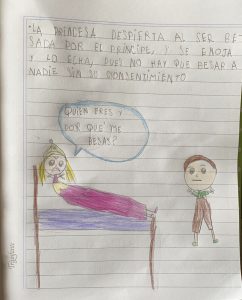 -LA PRINCESA DESPIERTA AL SER BE-
SADA POR EL PRÍNCIPE, Y SE ENOJA
Y LO ECHA, PUES NO HAY QUE BESAR A
NADIE SIN SU CONSENTIMIENTO
QUIEN ERES Y
POR QUÉ ME
BESAS?